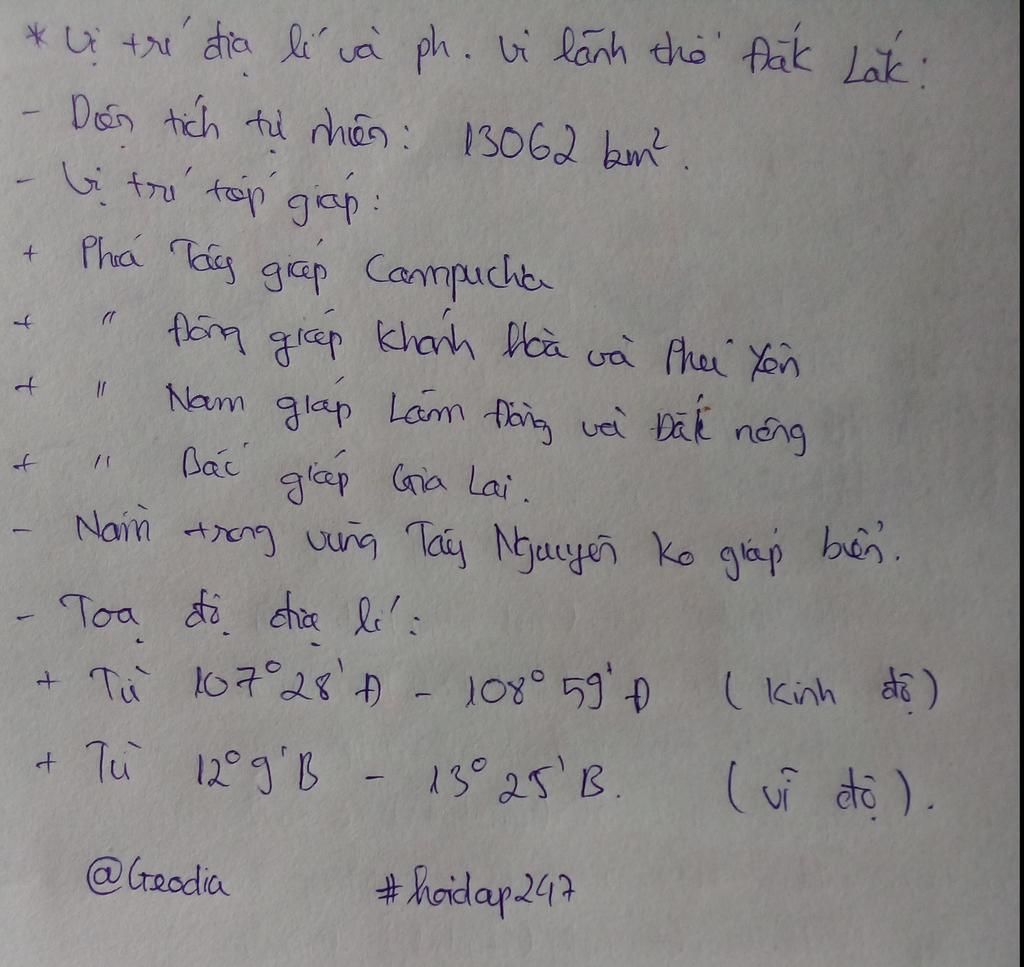 * Vị trí địa lí và ph. vi lãnh thổ Đắk Lắk:
- Diện tích tự nhiên: 13062 km².
- Vị trí tiếp giáp:
+ Phía Tây giáp Campuchia
+ " Đông giáp Khánh Hoà và Phú Yên
+ " Nam giáp Lâm Đồng và Đắk nông
+ " Bắc giáp Gia Lai.
- Nằm trong vùng Tây Nguyên ko giáp biển.
- Toạ độ địa lí:
+ Từ 107°28'Đ - 108°59'Đ (Kinh độ)
+ Từ 12°9'B - 13°25'B. (vĩ độ).
@Geodia #hoidap247